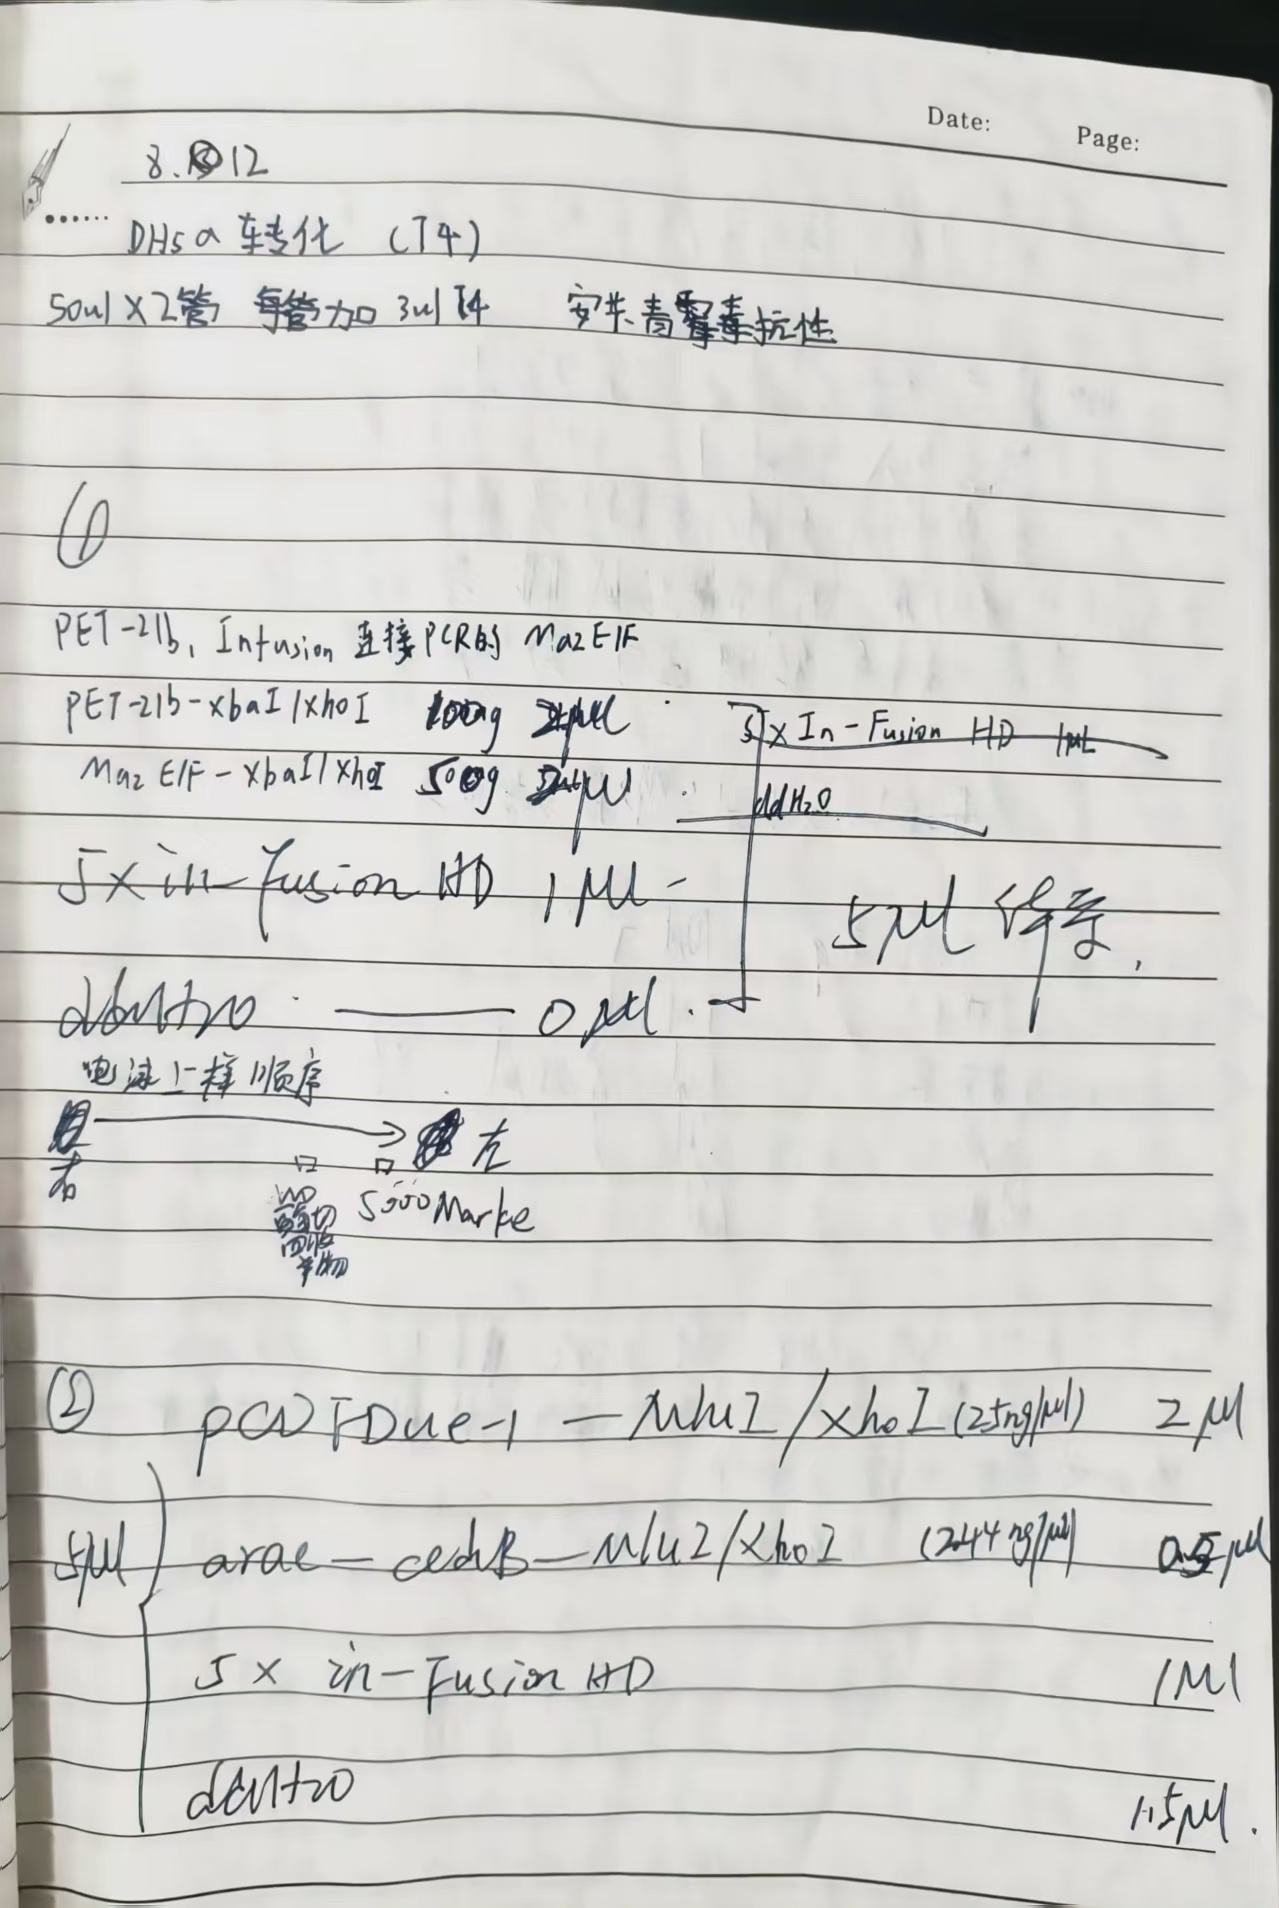 Date: Page:
8. 12
DH5α 转化 (T4)
50ul×2管 每管加 3ul T4 安苄青霉素抗性
①
PET-21b, Infusion 连接PCR的 MazE1F
PET-21b-xbaI/xhoI 100ng 2μl
MazE1F-xbaI/xhoI 50ng 2μl
5×In-Fusion HD 1μL
ddH2O
5×in-Fusion HD 1μl
ddH2O 0μl.
5μl 体系.
电泳上样顺序
右 → 左
酶切回收产物 5000 Marke
② pCDFDue-1-MluI/xhoI (25ng/μl) 2μl
5μl araC-ccdB-MluI/xhoI (244ng/μl) 0.5μl
5× in-Fusion HD 1μl
ddH2O 1.5μl.